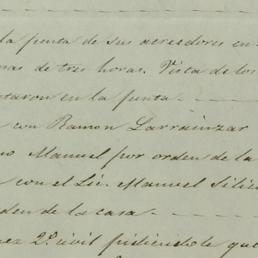 la junta de sus acreedores en
mas de tres horas. Vista de los
taron en la junta.
con Ramon Larrainzar
no Manuel por orden de la
con el Lic. Manuel Silic
rden de la casa.
ez 2º civil pidiendole que